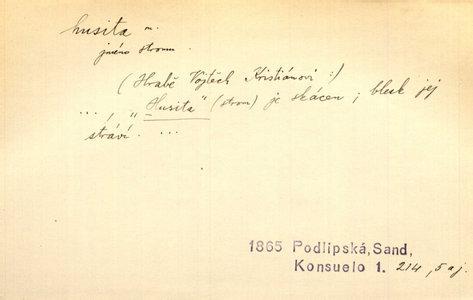 husita m.
jméno stromu.
(Hrabě Vojtěch Kristiánovi:)
..., „Husita“ (strom) je skácen; blesk jej
stráví. ...
1865 Podlipská, Sand,
Konsuelo 1. 214, 5 aj.